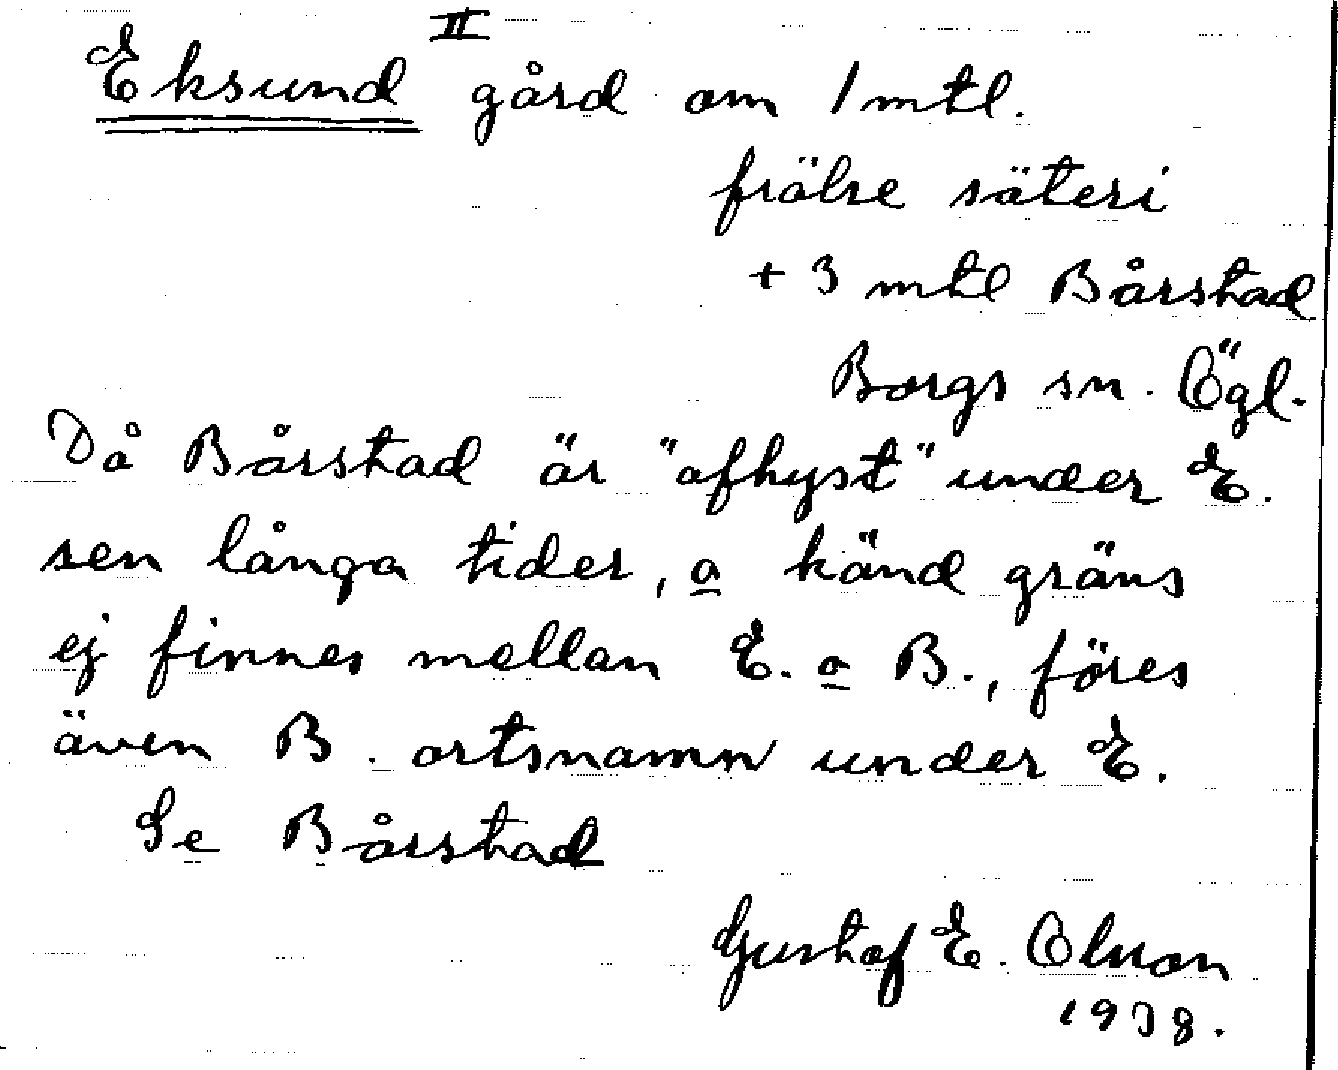 II
Eksund gård om 1 mtl.
frälse säteri
+ 3 mtl Bårstad
Borgs sn. Ögl.
Då Bårstad är "afhyst" under E.
sen långa tider, o känd gräns
ej finnes mellan E. o B., föres
även B. ortsnamn under E.
Se Bårstad
Gustaf E. Olsson
1938.